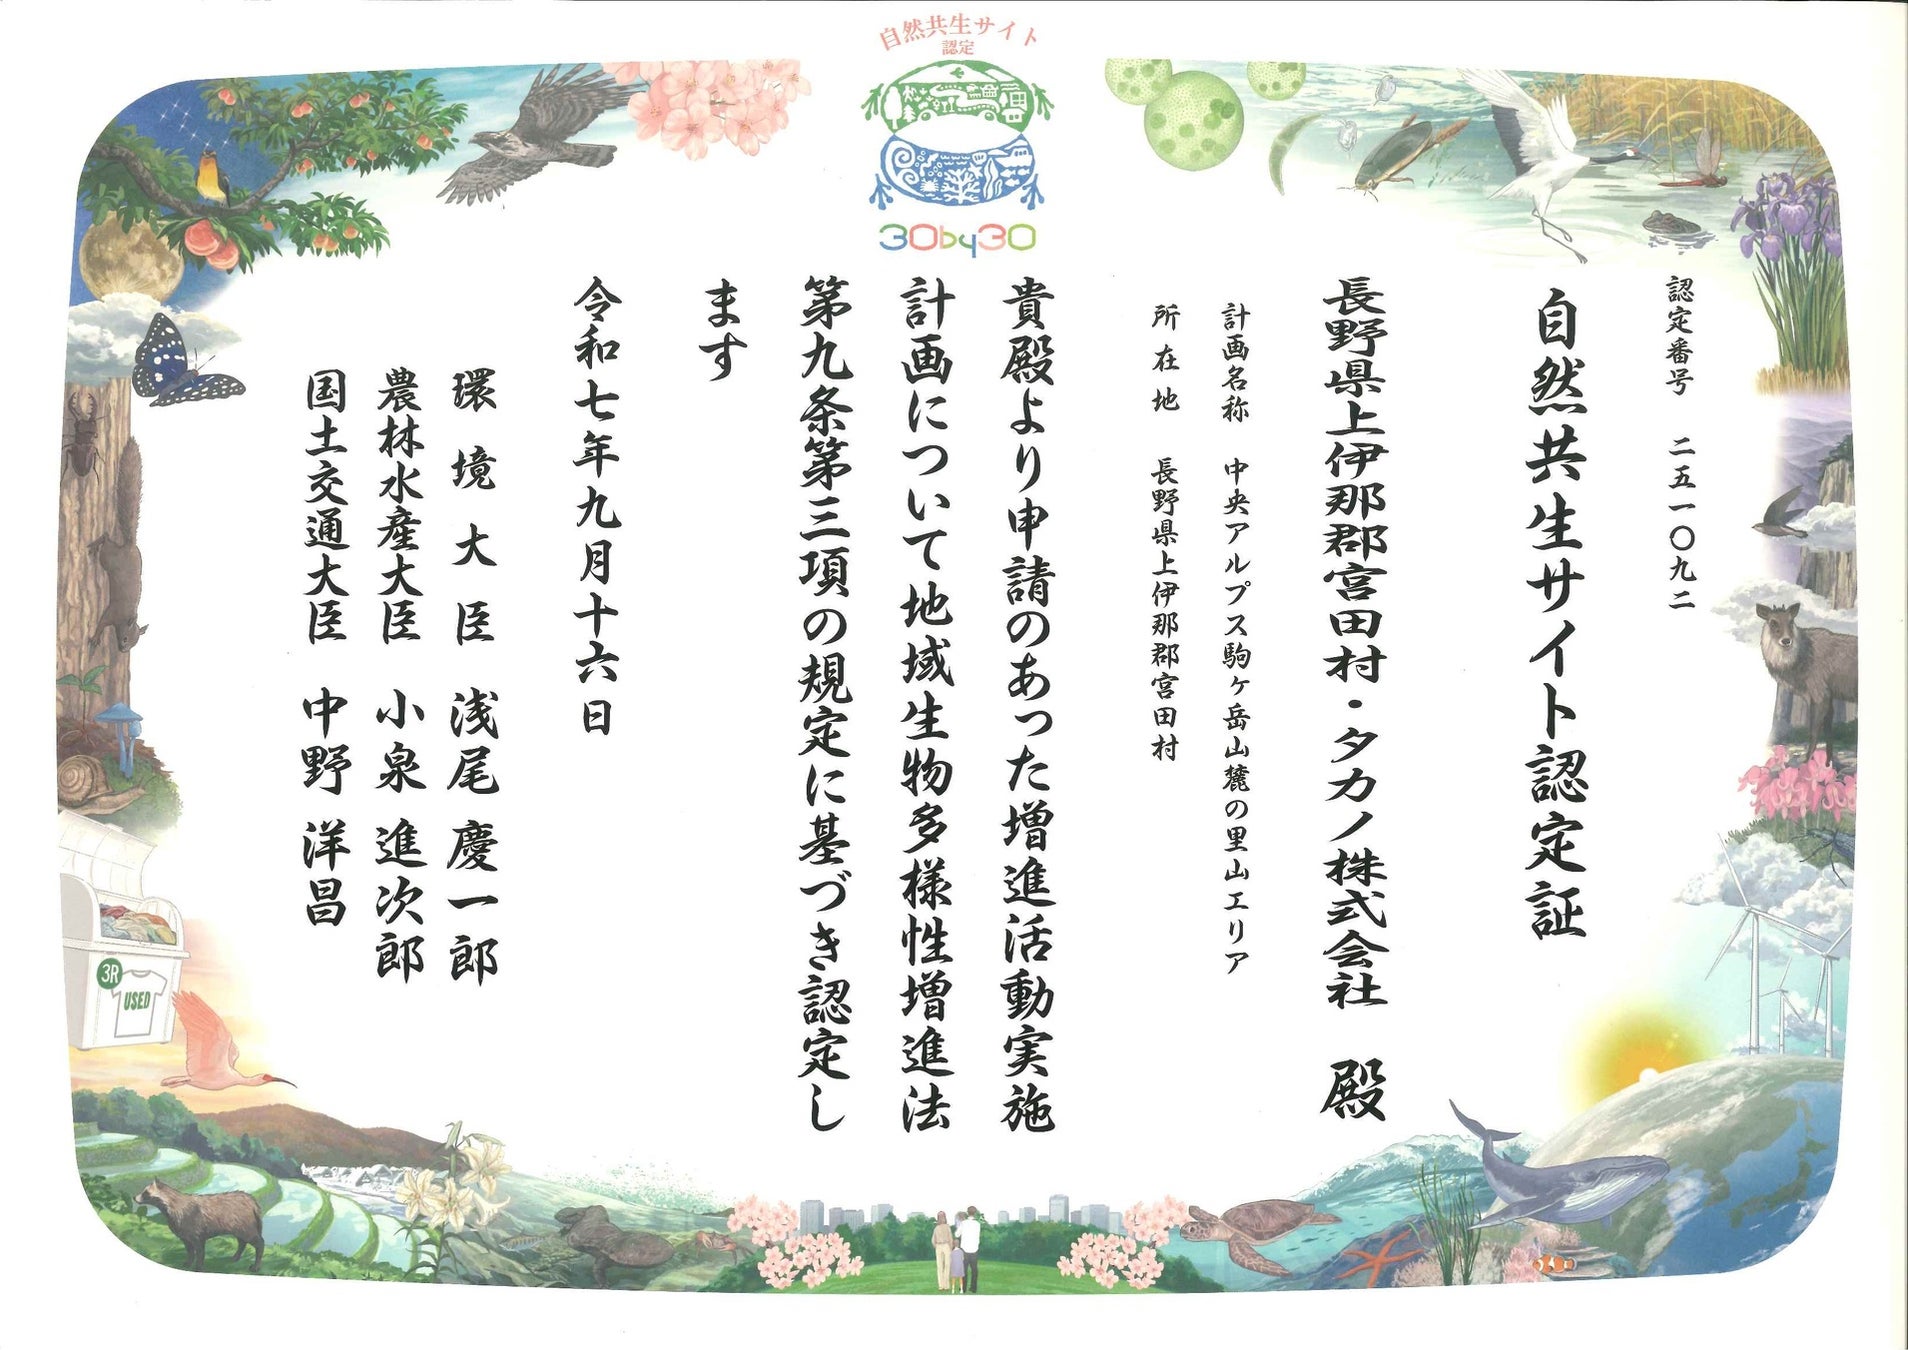 自然共生サイト
認定
30by30
認定番号 二五一〇九二
自然共生サイト認定証
長野県上伊那郡宮田村・タカノ株式会社 殿
計画名称 中央アルプス駒ヶ岳山麓の里山エリア
所在地 長野県上伊那郡宮田村
貴殿より申請のあった増進活動実施
計画について地域生物多様性増進法
第九条第三項の規定に基づき認定し
ます
令和七年九月十六日
環境大臣 浅尾慶一郎
農林水産大臣 小泉進次郎
国土交通大臣 中野洋昌
3R
USED